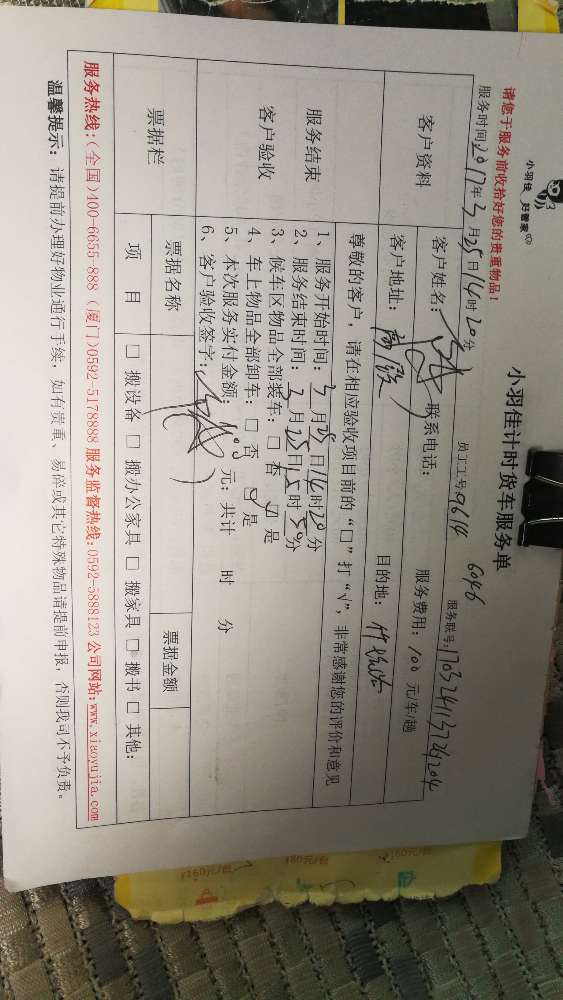 小羽佳 好管家
小羽佳计时货车服务单
请您于服务前收拾好您的贵重物品！
6046
服务时间2017年3月25日14时20分
员工工号9614
服务联号:
客户资料
客户姓名:
联系电话:
服务费用: 100 元/车/趟
客户地址:
目的地:
服务结束
客户验收
尊敬的客户，请在相应验收项目前的“□”打“√”，非常感谢您的评价和意见
1、服务开始时间: 3月25日14时20分
2、服务结束时间: 3月25日15时50分
3、候车区物品全部装车: □ 否 ☑ 是
4、车上物品全部卸车: □ 否 ☑ 是
5、本次服务实付金额: 元; 共计 时 分
6、客户验收签字:
票据栏
票据名称
票据金额
项 目
□ 搬设备 □ 搬办公家具 □ 搬家具 □ 搬书 □ 其他:
服务热线:(全国)400-6655-888 (厦门)0592-5178888 服务监督热线:0592-5888123 公司网站:www.xiaoyujia.com
温馨提示: 请提前办理好物业通行手续，如有贵重、易碎或其它特殊物品请提前申报，否则我司不予负责。
¥160元/包